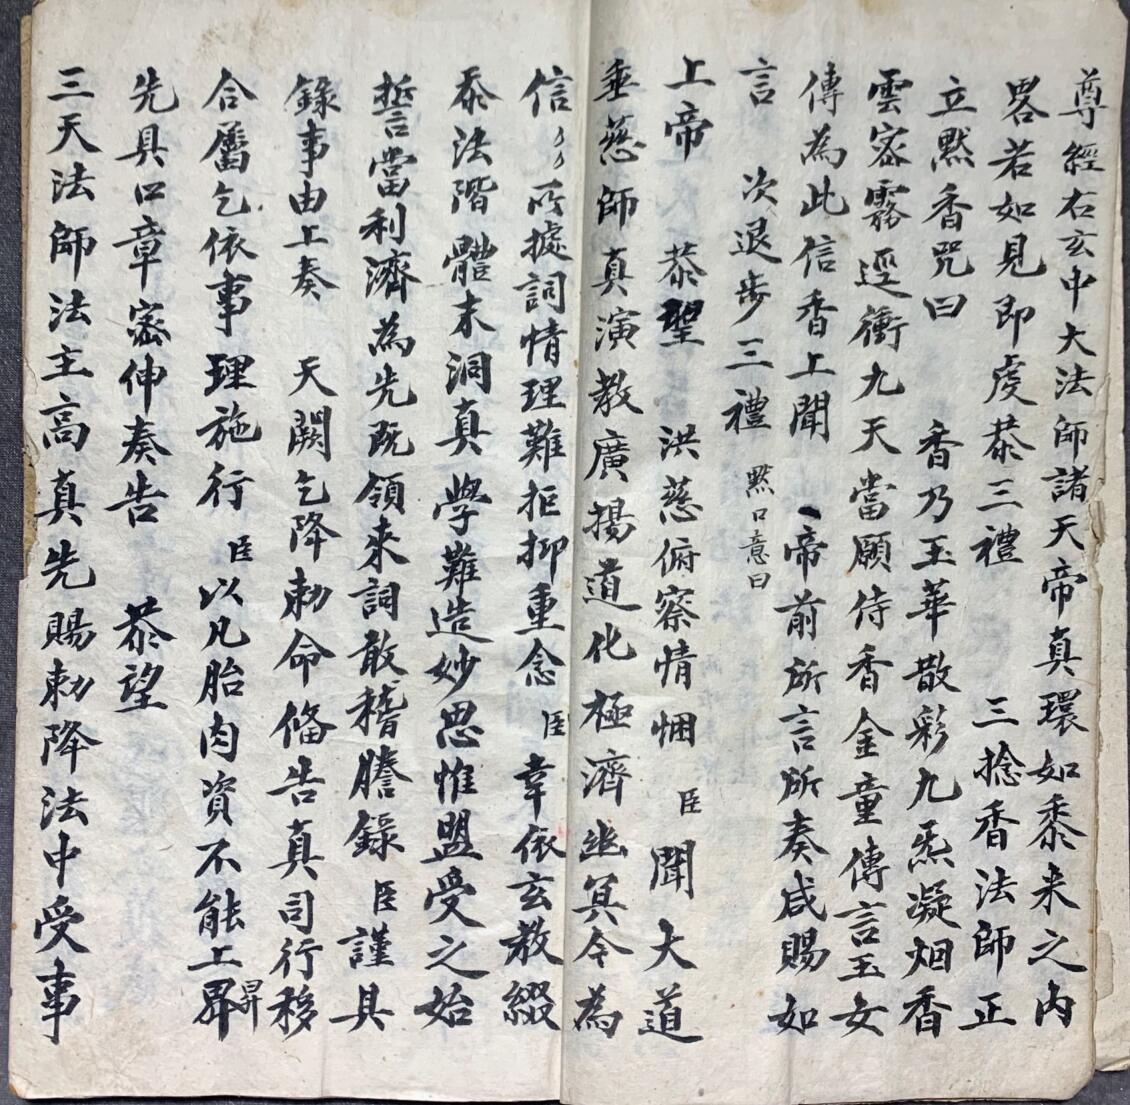 尊經右玄中大法師諸天帝真環如黍米之內
畧若如見即虔恭三禮　三捻香法師正
立黙香咒曰　香乃玉華散彩九炁凝烟香
雲密霧逕衝九天當願侍香金童傳言玉女
傳為此信香上聞　帝前所言所奏咸賜如
言　次退步三禮　黙口意曰
上帝　恭聖　洪慈俯察情悃臣聞大道
垂慈師真演教廣揚道化極濟幽冥今為
信〻所據詞情理難拒抑重念臣幸依玄教綴
忝法階體末洞真學難造妙思惟盟受之始
誓當利濟為先既領來詞敢稽謄錄臣謹具
錄事由上奏　天闕乞降勅命俻告真司行移
合屬乞依事理施行臣以凡胎肉資不能上昇昇
先具口章密伸奏告　恭望
三天法師法主高真先賜勅降法中受事